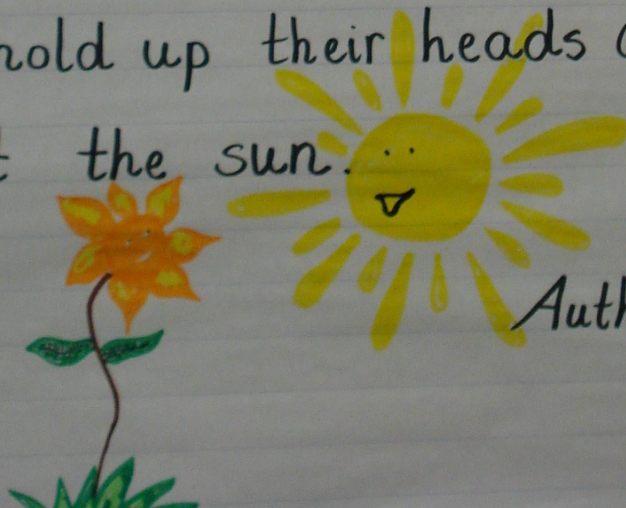 hold up their heads
the sun.
Auth